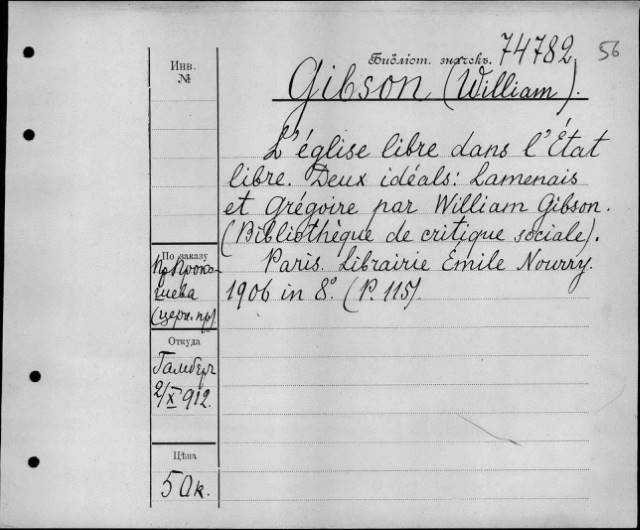 Библіот. значекъ. 74782
56
Инв.
№
Gibson (William).
L'église libre dans l'État
libre. Deux idéals: Lamenais
et Grégoire par William Gibson.
(Bibliothèque de critique sociale).
Paris. Librairie Émile Nourry.
1906 in 8º. (P. 115).
По заказу
Пр. Проко-
шева
(церк. пр)
Откуда
Гамбер
2/X 912.
Цѣна
50к.